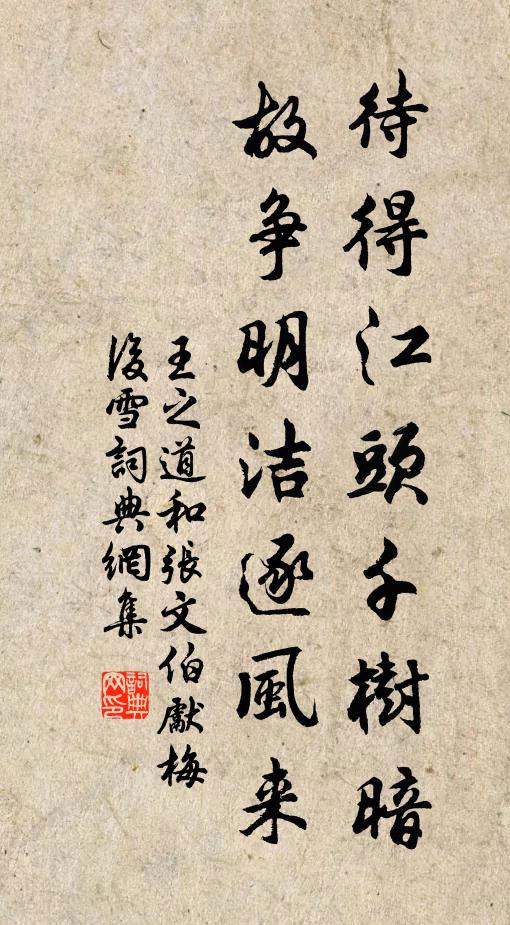 待得江頭千樹暗
故争明洁逐風来
王之道和張文伯獻梅
後雪詞典網集
詞典網印